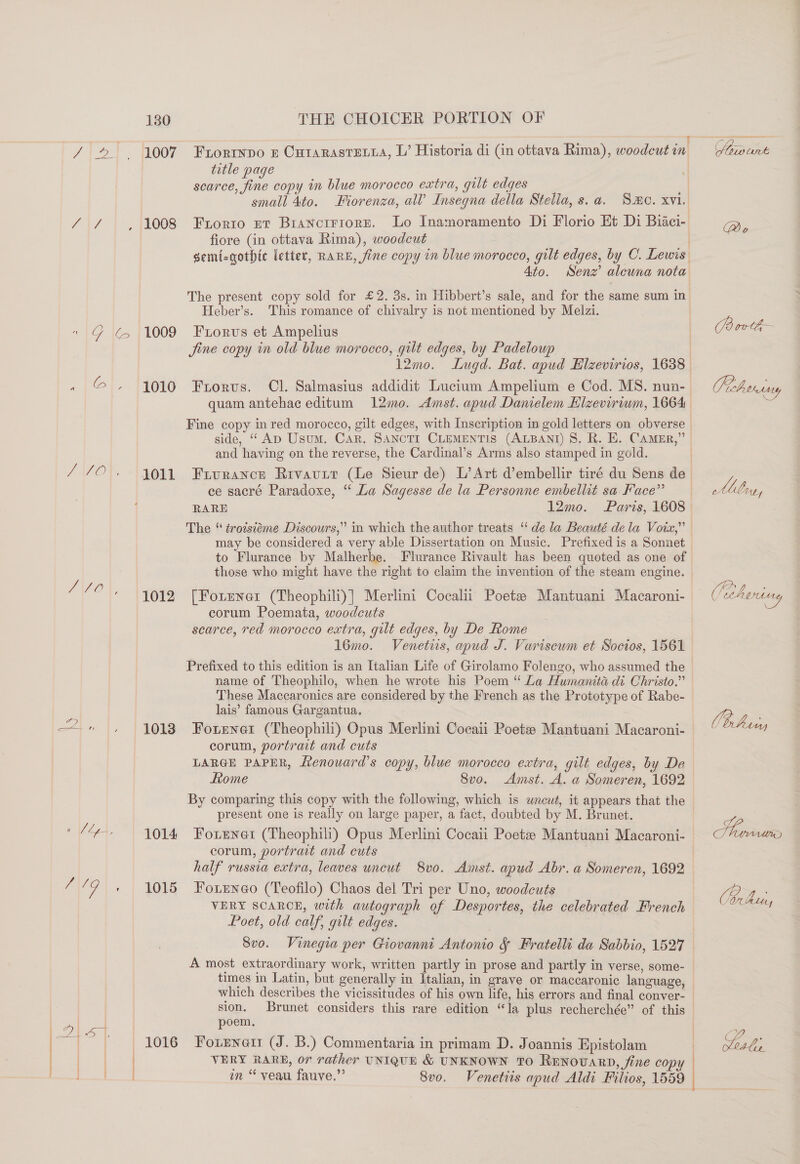 130 THE CHOICER PORTION OF
1007 FLORINDO E CHIARASTELLA, L’ Historia di (in ottava Rima), woodcut in
title page
scarce, fine copy in blue morocco extra, gilt edges
small 4to. Fiorenza, all’ Insegna della Stella, s. a. Sæc. xvi.
1008 FLORIO ET BIANCIFIORE. Lo Inamoramento Di Florio Et Di Biaci-
fiore (in ottava Rima), woodcut
semi-gothic letter, RARE, fine copy in blue morocco, gilt edges, by C. Lewis
4to. Senz’ alcuna nota
The present copy sold for £2. 3s. in Hibbert’s sale, and for the same sum in
Heber’s. This romance of chivalry is not mentioned by Melzi.
1009 FLORUS et Ampelius
fine copy in old blue morocco, gilt edges, by Padeloup
12mo. Lugd. Bat. apud Elzevirios, 1638
1010 FLORUS. Cl. Salmasius addidit Lucium Ampelium e Cod. MS. nun-
quam antehac editum 12mo. Amst. apud Danielem Elzevirium, 1664
Fine copy in red morocco, gilt edges, with Inscription in gold letters on obverse
side, “ AD USUM. CAR. SANCTI CLEMENTIS (ALBANI) S. R. E. CAMER,”
and having on the reverse, the Cardinal’s Arms also stamped in gold.
1011 FLURANCE RIVAULT (Le Sieur de) L’Art d’embellir tiré du Sens de
ce sacré Paradoxe, “ La Sagesse de la Personne embellit sa Face”
RARE 12mo. Paris, 1608
The “ troisième Discours,” in which the author treats “ de la Beauté de la Voix,”
may be considered a very able Dissertation on Music. Prefixed is a Sonnet
to Flurance by Malherbe. Flurance Rivault has been quoted as one of
those who might have the right to claim the invention of the steam engine.
1012 [FOLENGI (Theophili)] Merlini Cocalii Poetæ Mantuani Macaroni-
corum Poemata, woodcuts
scarce, red morocco extra, gilt edges, by De Rome
16mo. Venetiis, apud J. Variscum et Socios, 1561
Prefixed to this edition is an Italian Life of Girolamo Folengo, who assumed the
name of Theophilo, when he wrote his Poem “ La Humanità di Christo.”
These Maccaronics are considered by the French as the Prototype of Rabe-
lais’ famous Gargantua.
1013 FOLENGI (Theophili) Opus Merlini Cocaii Poetæ Mantuani Macaroni-
corum, portrait and cuts
LARGE PAPER, Renouard’s copy, blue morocco extra, gilt edges, by De
Rome 8vo. Amst. A. a Someren, 1692
By comparing this copy with the following, which is uncut, it appears that the
present one is really on large paper, a fact, doubted by M. Brunet.
1014 FOLENGI (Theophili) Opus Merlini Cocaii Poetæ Mantuani Macaroni-
corum, portrait and cuts
half russia extra, leaves uncut 8vo. Amst. apud Abr. a Someren, 1692
1015 FOLENGO (Teofilo) Chaos del Tri per Uno, woodcuts
VERY SCARCE, with autograph of Desportes, the celebrated French
Poet, old calf, gilt edges.
8vo. Vinegia per Giovanni Antonio & Fratelli da Sabbio, 1527
A most extraordinary work, written partly in prose and partly in verse, some-
times in Latin, but generally in Italian, in grave or maccaronic language,
which describes the vicissitudes of his own life, his errors and final conver-
sion. Brunet considers this rare edition “la plus recherchée” of this
poem.
1016 FOLENGII (J. B.) Commentaria in primam D. Joannis Epistolam
VERY RARE, or rather UNIQUE & UNKNOWN TO RENOUARD, fine copy
in “ veau fauve.” 8vo. Venetiis apud Aldi Filios, 1559
Booth
Pickering
Pickering
Leslie